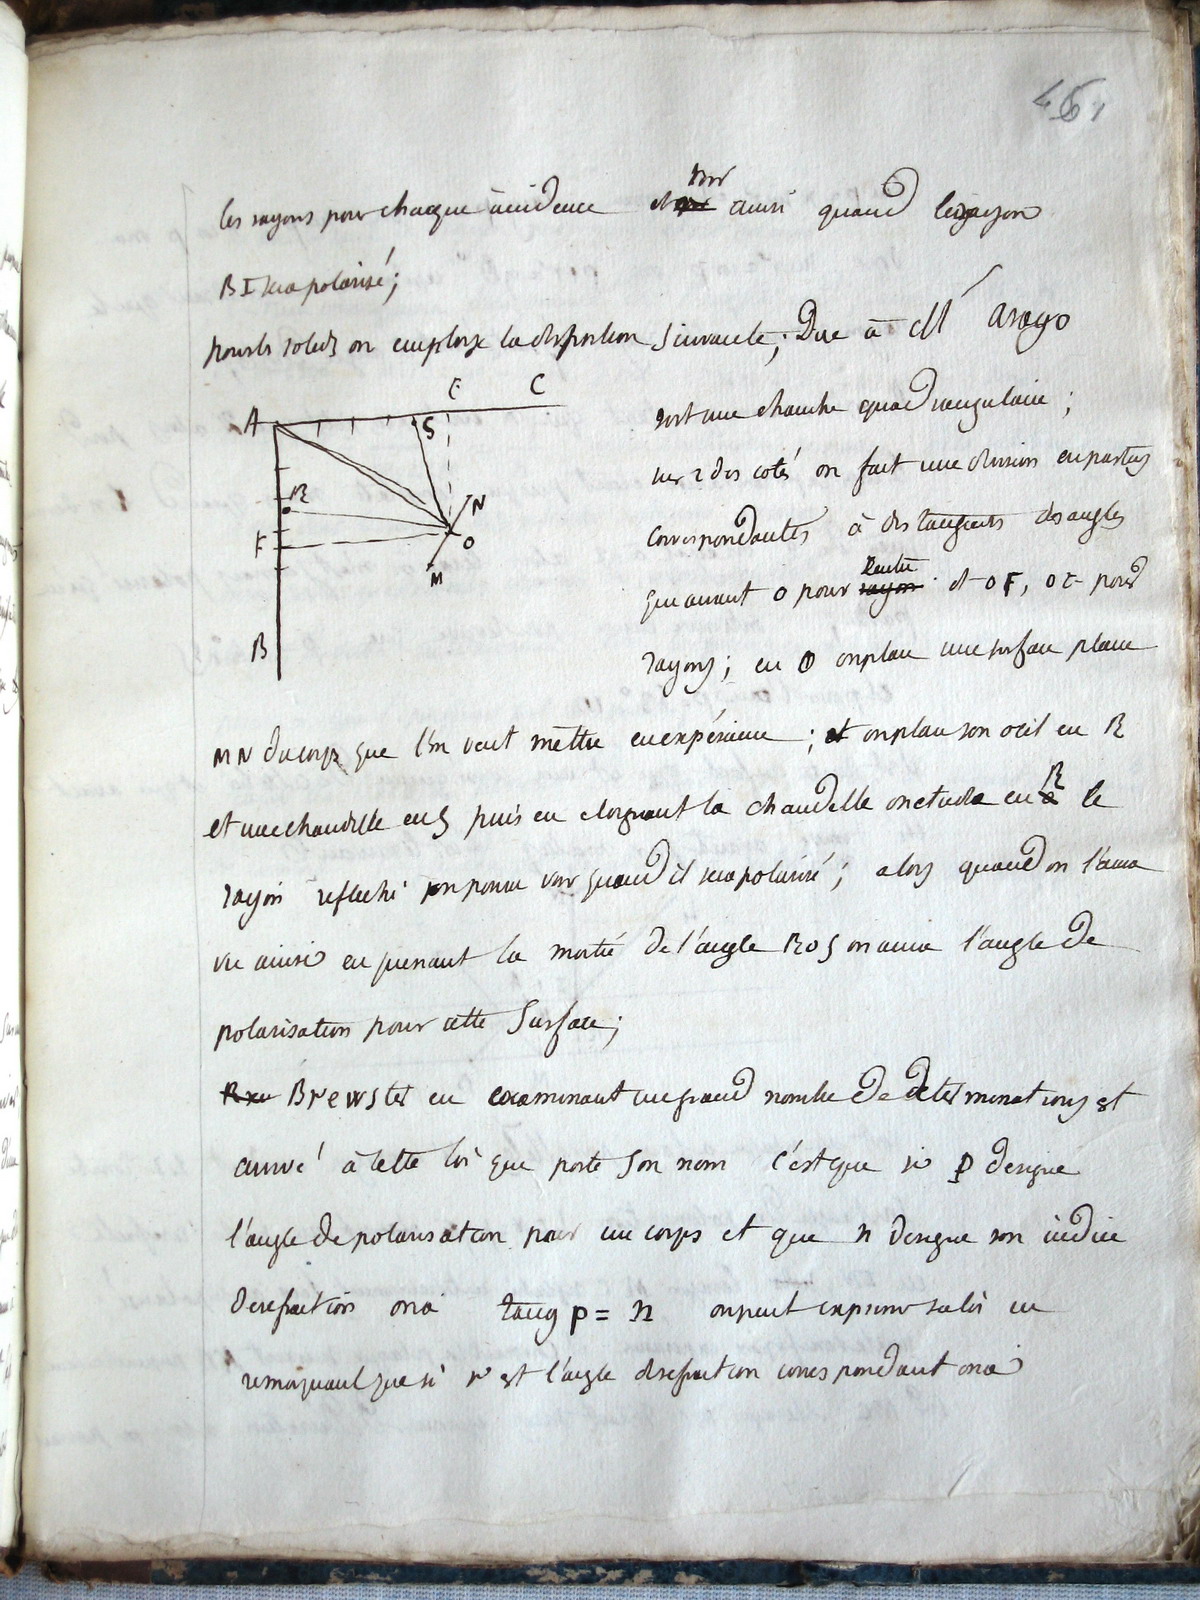 461
les rayons pour chaque incidence et voir ainsi quand le rayon
BI sera polarisé;
pour les solides on employe la disposition suivante; Due à Mr arago
A E C S R N F O M B
soit une planche quadrangulaire;
sur 2 des cotés on fait une division en parties
correspondantes à des tangentes des angles
qui auront O pour rayon centre et OF, OE pour
rayons; en O on place une surface plane
MN du corps que l'on veut mettre en expérience; et on place son oeil en R
et une chandelle en S puis en eloignant la chandelle on etudie en R le
rayon reflechi on pourra voir quand il sera polarisé; alors quand on l'aura
vu ainsi en prenant la moitié de l'angle ROS on aura l'angle de
polarisation pour cette surface;
Brewster en examinant un grand nombre de determinations est
arrivé à cette loi que porte son nom c'est que si p designe
l'angle de polarisation pour un corps et que n designe son indice
de refraction on a tang p = n on peut exprimer sa loi en
remarquant que si r est l'angle de refraction correspondant on a